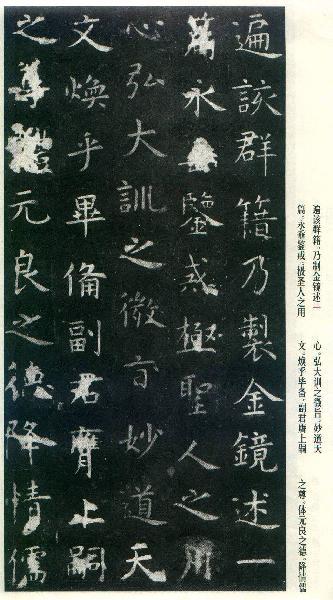 遍該群籍乃製金鏡述一
篇永垂鑒戒極聖人之用
心弘大訓之微旨妙道天
文煥乎畢備副君膺上嗣
之尊體元良之德降情儒
遍该群籍,乃制金镜述一
篇,永垂鉴戒,极圣人之用
心,弘大训之微旨,妙道天
文,焕乎毕备,副君膺上嗣
之尊,体元良之德,降情儒